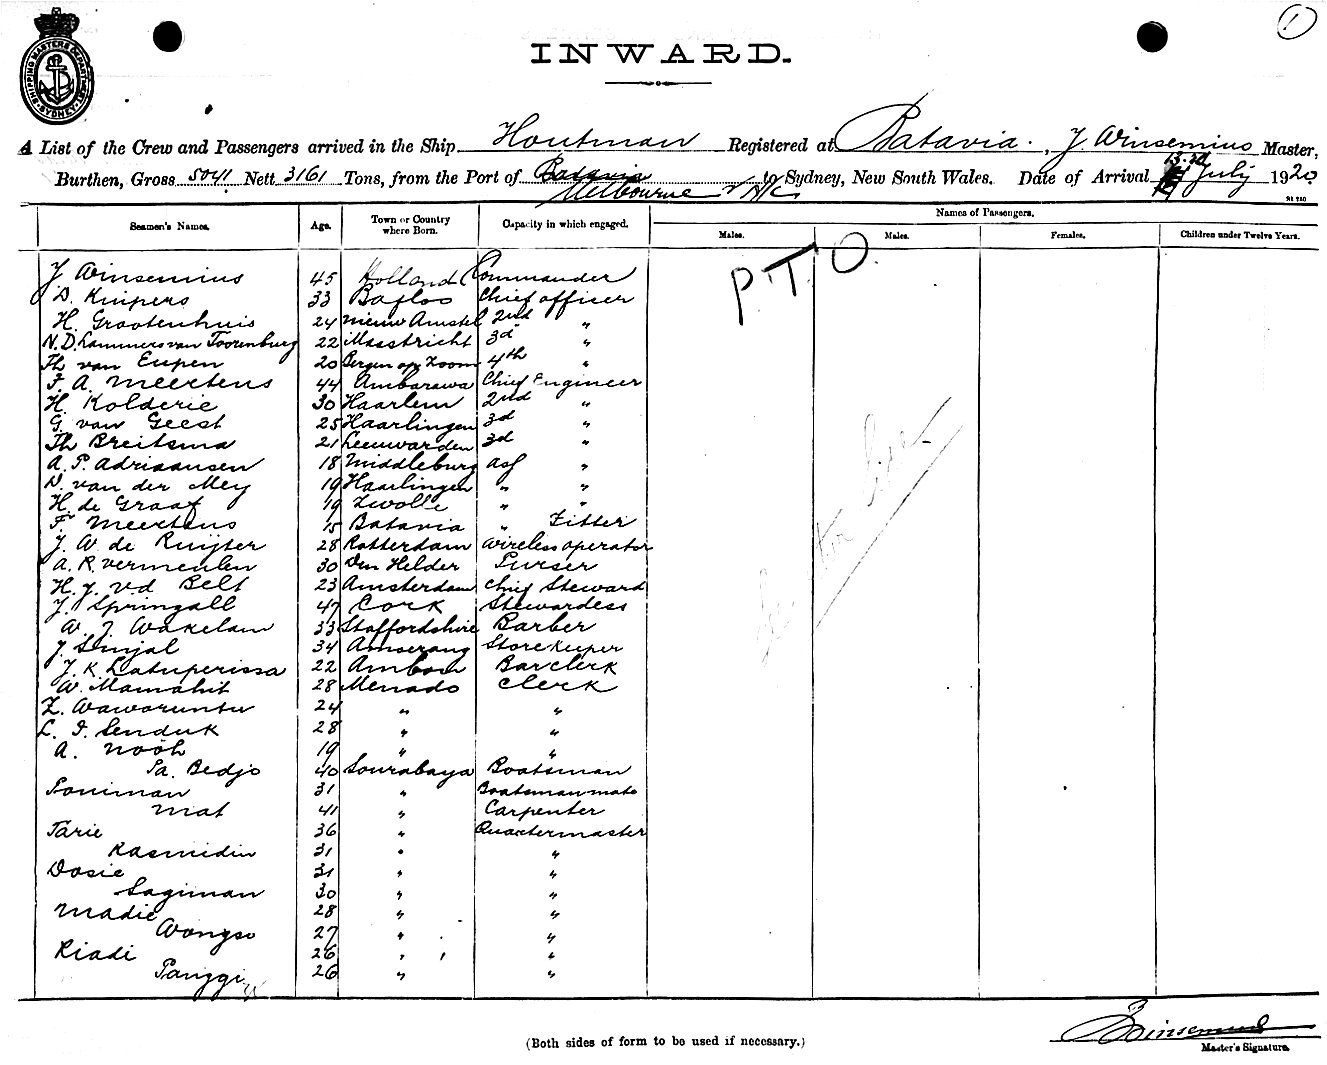 1
SHIPPING MASTERS DEPARTMENT SYDNEY
INWARD.
A List of the Crew and Passengers arrived in the Ship Houtman Registered at Batavia., J. Winsemius Master,
Burthen, Gross 5041 Nett 3161 Tons, from the Port of Batavia to Sydney, New South Wales. Date of Arrival 13.rd July 1920
Melbourne
Seamen's Names. Age. Town or Country where Born. Capacity in which engaged. Names of Passengers.
Males. Males. Females. Children under Twelve Years.
P.T.O.
J Winsemius 45 Holland Commander
D. Kuipers 33 Bafloo Chief officer
H. Grootenhuis 24 Nieuw Amstel 2nd "
N.D. Lammers van Toorenburg 22 Maastricht 3d "
Th van Eupen 20 Bergen op Zoom 4th "
F. A. Meertens 44 Ambarawa Chief Engineer
H. Kolderie 30 Haarlem 2nd "
G. van Geest 25 Haarlingen 3d "
Th Breitsma 21 Leeuwarden 3d "
A. P. Adriaansen 18 Middleburg ass "
D. van der Mey 19 Haarlingen " "
H. de Graaf 19 Zwolle " "
F. Meertens 15 Batavia " Fitter
J. W. de Ruijter 28 Rotterdam Wireless operator
A. R. Vermeulen 30 Den Helder Purser
H. J. v.d Belt 23 Amsterdam Chief Steward
J. Springall 47 Cork Stewardess
W. J. Wakelam 33 Staffordshire Barber
J. Sinjal 34 Amoerang Storekeeper
J. K. Latuperissa 22 Ambon Barclerk
W. Mamahit 28 Menado Clerk
Z. Waworuntu 24 " "
L. F. Senduk 28 " "
A. Nooh 19 " "
Pa. Bedjo 40 Sourabaya Boatsman
Soniman 31 " Boatsmanmate
Mat 41 " Carpenter
Tarie 36 " Quartermaster
Kasmidin 31 " "
Dosie 31 " "
Sagiman 30 " "
Madie 28 " "
Wongso 27 " "
Riadi 26 " "
Panggi 26 " "
Winsemius
(Both sides of form to be used if necessary.)
Master's Signature.